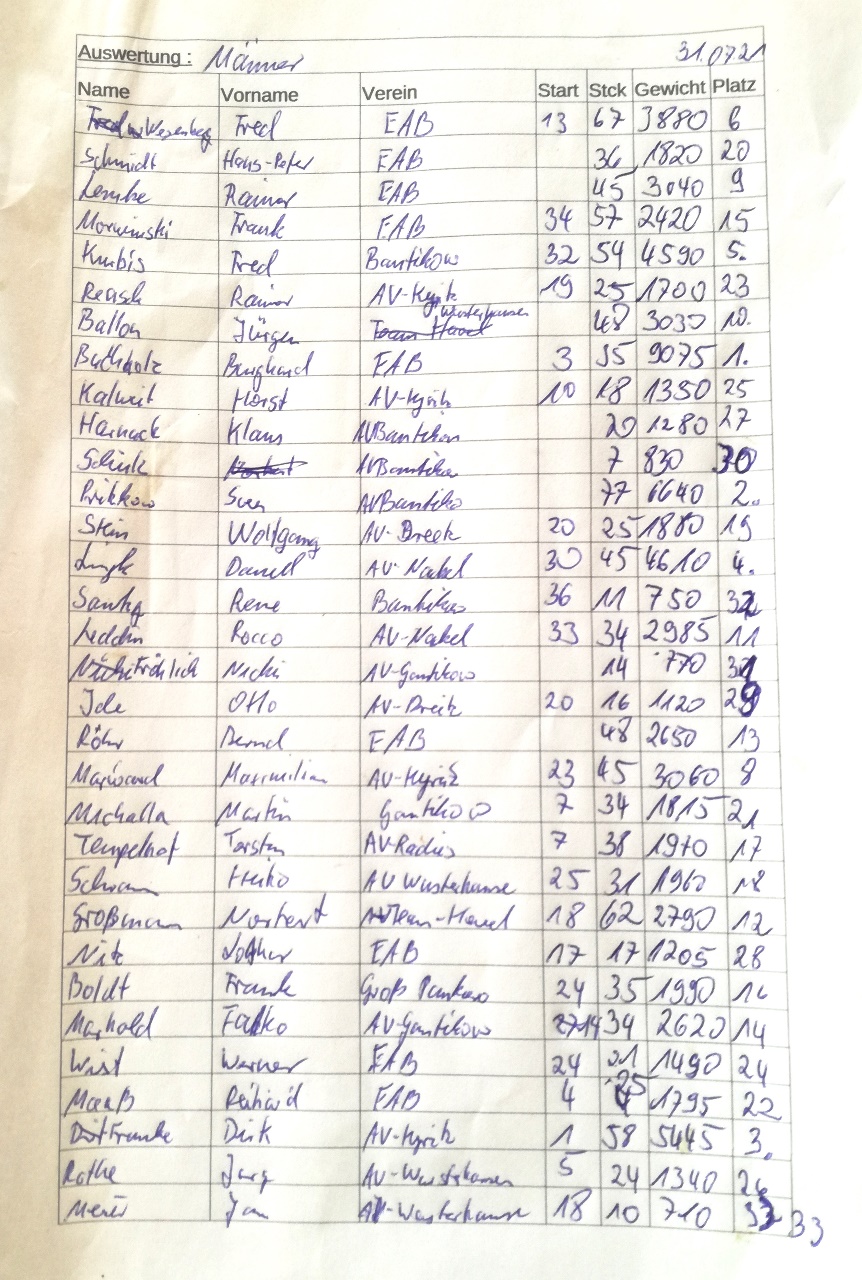 Auswertung : Männer 31.07.21
Name Vorname Verein Start Stck Gewicht Platz
Wesenberg Fred EAB 13 67 3880 6
Schmidt Hans-Peter EAB 36 1820 20
Lemke Rainer EAB 45 3040 9
Frank EAB 34 57 2420 15
Kurbis Fred Bantikow 32 54 4590 5.
Reasch Rainer AV-Kyritz 19 25 1700 23
Ballon Jürgen Wusterhausen 48 3030 10.
Buchholz Burghard EAB 3 35 9075 1.
Kalweit Horst AV-Kyritz 10 18 1350 25
Harnack Klaus AV Bantikow 20 1280 27
Schink AV Bantikow 7 830 30
Prikkow Sven AV Bantiko 77 6640 2.
Stein Wolfgang AV-Breek 20 25 1880 19
Daniel AV-Nakel 30 45 4610 4.
Rene Bantikow 36 11 750 32
Leddin Rocco AV-Nakel 33 34 2985 11
Fröhlich Nicki AV-Gantikow 14 770 31
Ide Otto AV-Breik 20 16 1120 29
Röhr Bernd EAB 48 2650 13
Maximilian AV-Kyritz 23 45 3060 8
Michalla Martin Gantikow 7 34 1815 21
Tempelhof Torsten AV-Radies 7 38 1970 17
Schramm Heiko AV Wusterhause 25 31 1960 18
Großmann Norbert Team-Havel 18 62 2790 12
Nitz Lothar EAB 17 17 1205 28
Boldt Frank Groß Pankow 24 35 1990 16
Marhold Falko AV-Gantikow 14 34 2620 14
Wist Werner EAB 24 21 1490 24
Maaß Reihard EAB 4 25 1795 22
Franke Dirk AV-Kyritz 1 58 5445 3.
Rothe Jörg AV-Wusterhausen 5 24 1340 26
Jan AV-Wusterhause 18 10 710 33 33